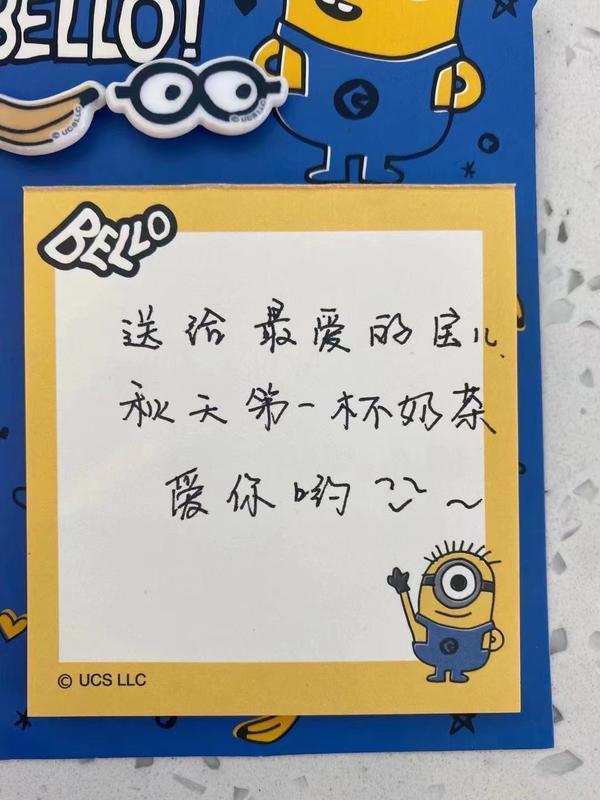 BELLO!
© UCS LLC
© UCS LLC
BELLO
送给最爱的宝儿
秋天第一杯奶茶
爱你哟～
© UCS LLC